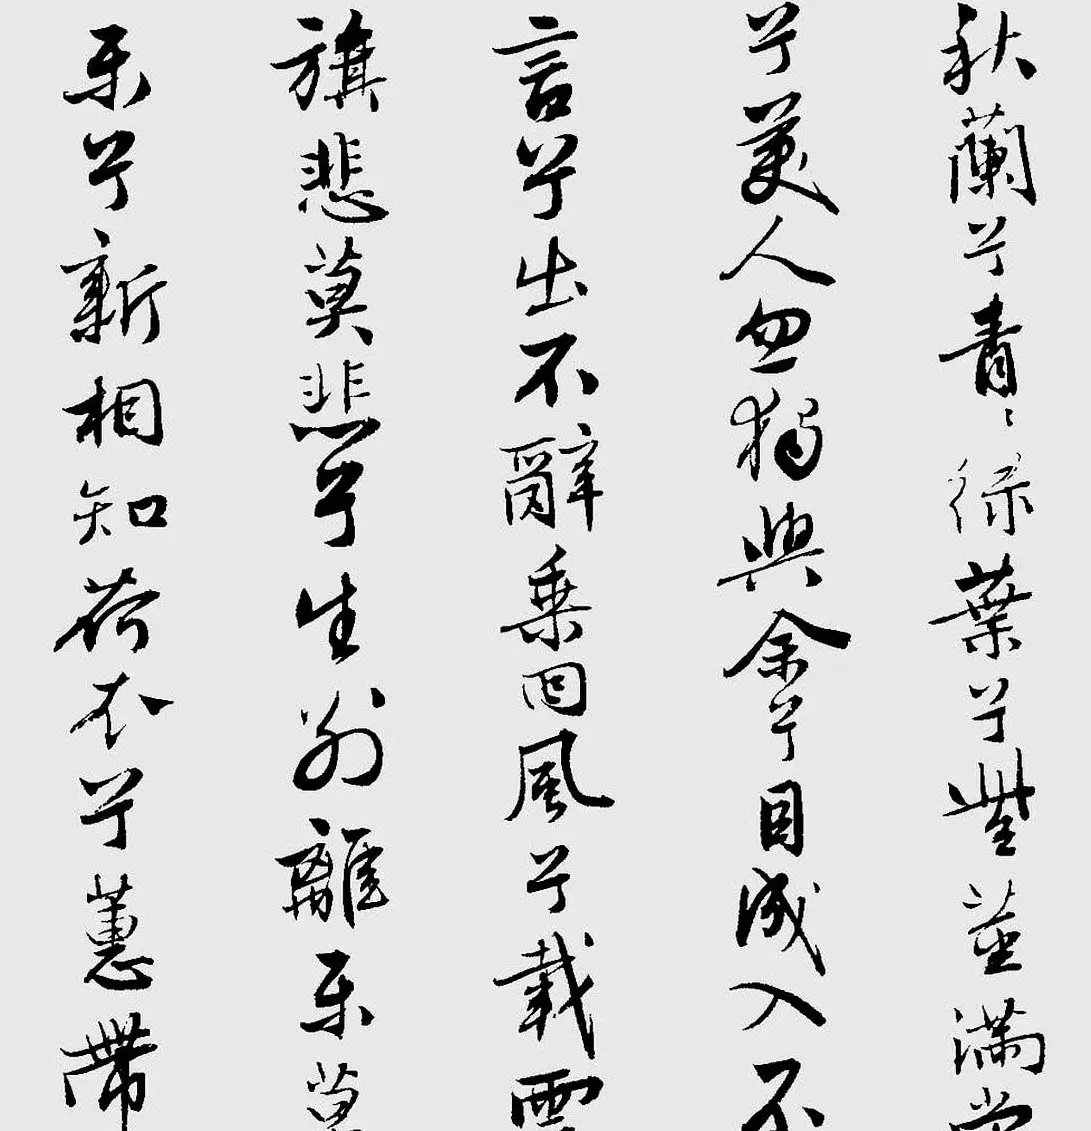 秋蘭兮青〻綠葉兮紫莖滿堂
兮美人忽獨與余兮目成入不
言兮出不辭乘回風兮載雲
旗悲莫悲兮生別離樂莫
樂兮新相知荷衣兮蕙帶